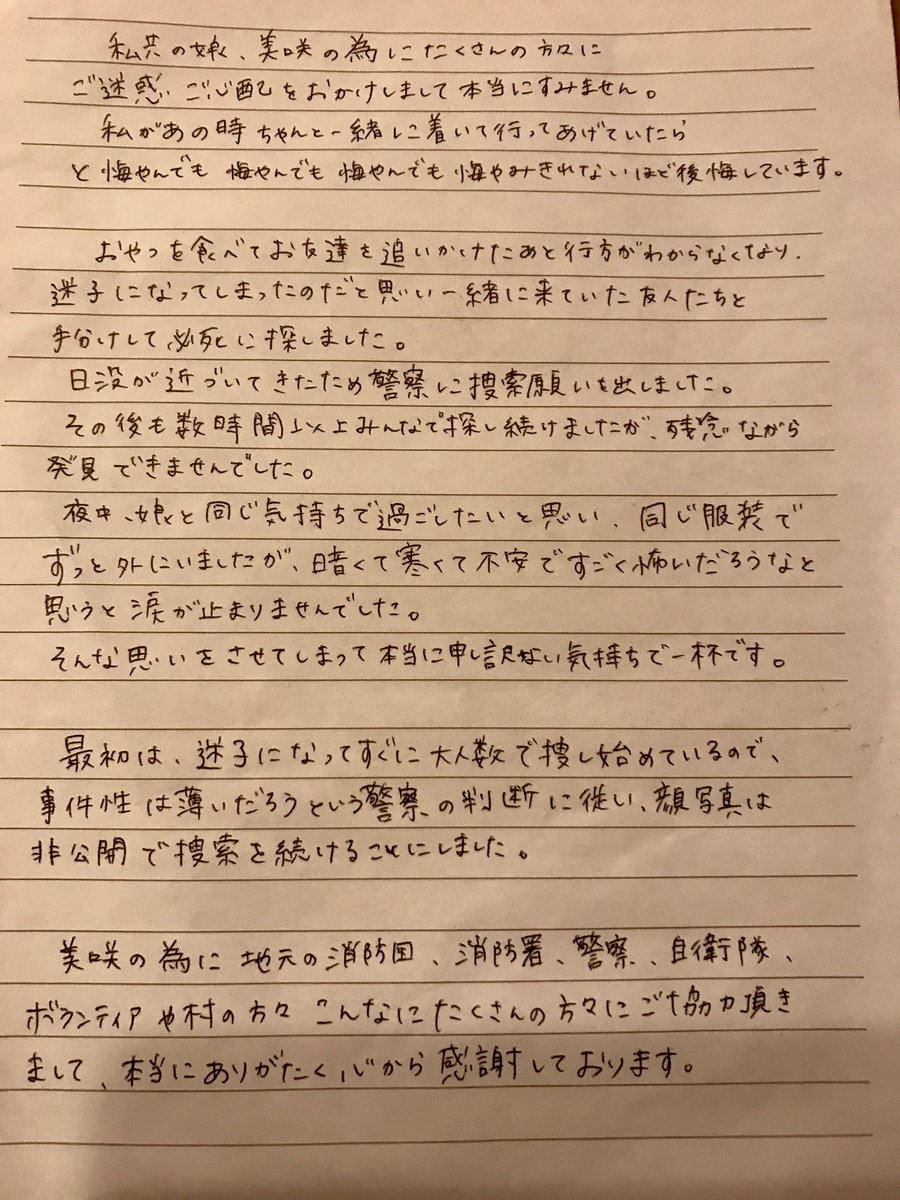 私共の娘、美咲の為にたくさんの方々に
ご迷惑 ご心配をおかけしまして本当にすみません。
私があの時ちゃんと一緒に着いて行ってあげていたら
と悔やんでも 悔やんでも 悔やんでも 悔やみきれないほど後悔しています。
おやつを食べてお友達を追いかけたあと行方がわからなくなり、
迷子になってしまったのだと思い一緒に来ていた友人たちと
手分けして必死に探しました。
日没が近づいてきたため警察に捜索願いを出しました。
その後も数時間以上みんなで探し続けましたが、残念ながら
発見できませんでした。
夜中、娘と同じ気持ちで過ごしたいと思い、同じ服装で
ずっと外にいましたが、暗くて寒くて不安ですごく怖いだろうなと
思うと涙が止まりませんでした。
そんな思いをさせてしまって本当に申し訳ない気持ちで一杯です。
最初は、迷子になってすぐに大人数で捜し始めているので、
事件性は薄いだろうという警察の判断に従い、顔写真は
非公開で捜索を続けることにしました。
美咲の為に地元の消防団、消防署、警察、自衛隊、
ボランティアや村の方々 こんなにたくさんの方々にご協力頂き
まして、本当にありがたく心から感謝しております。